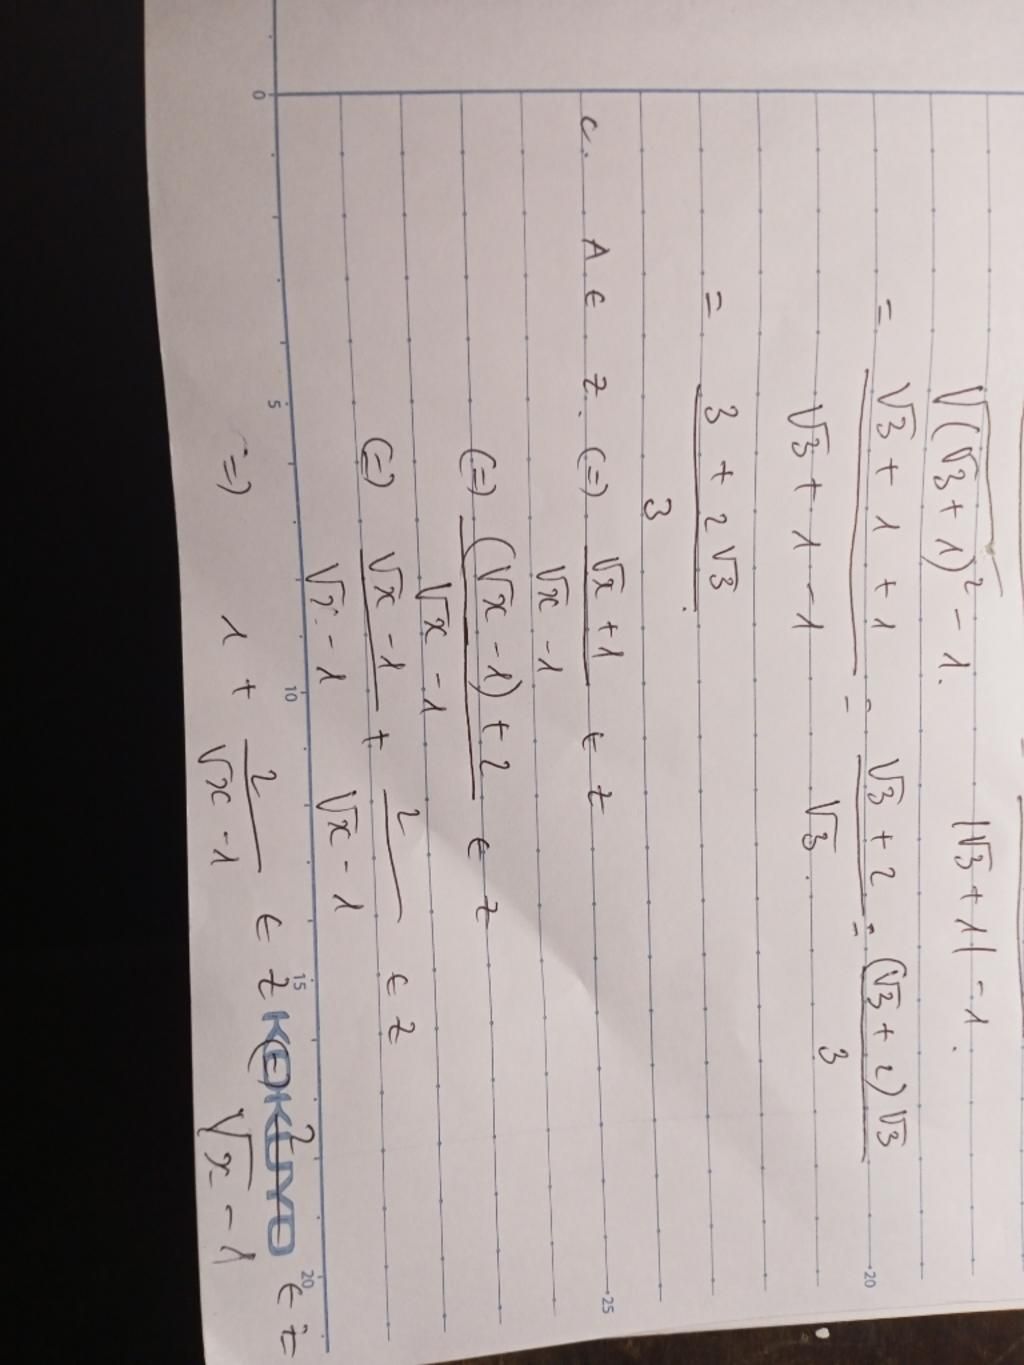 √(√3+1)² - 1. |√3+1| - 1.
= √3 + 1 + 1 / √3 + 1 - 1 = √3 + 2 / √3 = (√3 + 2) √3 / 3
= 3 + 2√3 / 3
c. A ∈ Z. (=) √x + 1 / √x - 1 ∈ Z
(=) (√x - 1) + 2 / √x - 1 ∈ Z
(=) √x - 1 / √x - 1 + 2 / √x - 1 ∈ Z
(=) 1 + 2 / √x - 1 ∈ Z (=) 2 / √x - 1 ∈ Z
KOKUYO
0 5 10 15 20
20
25